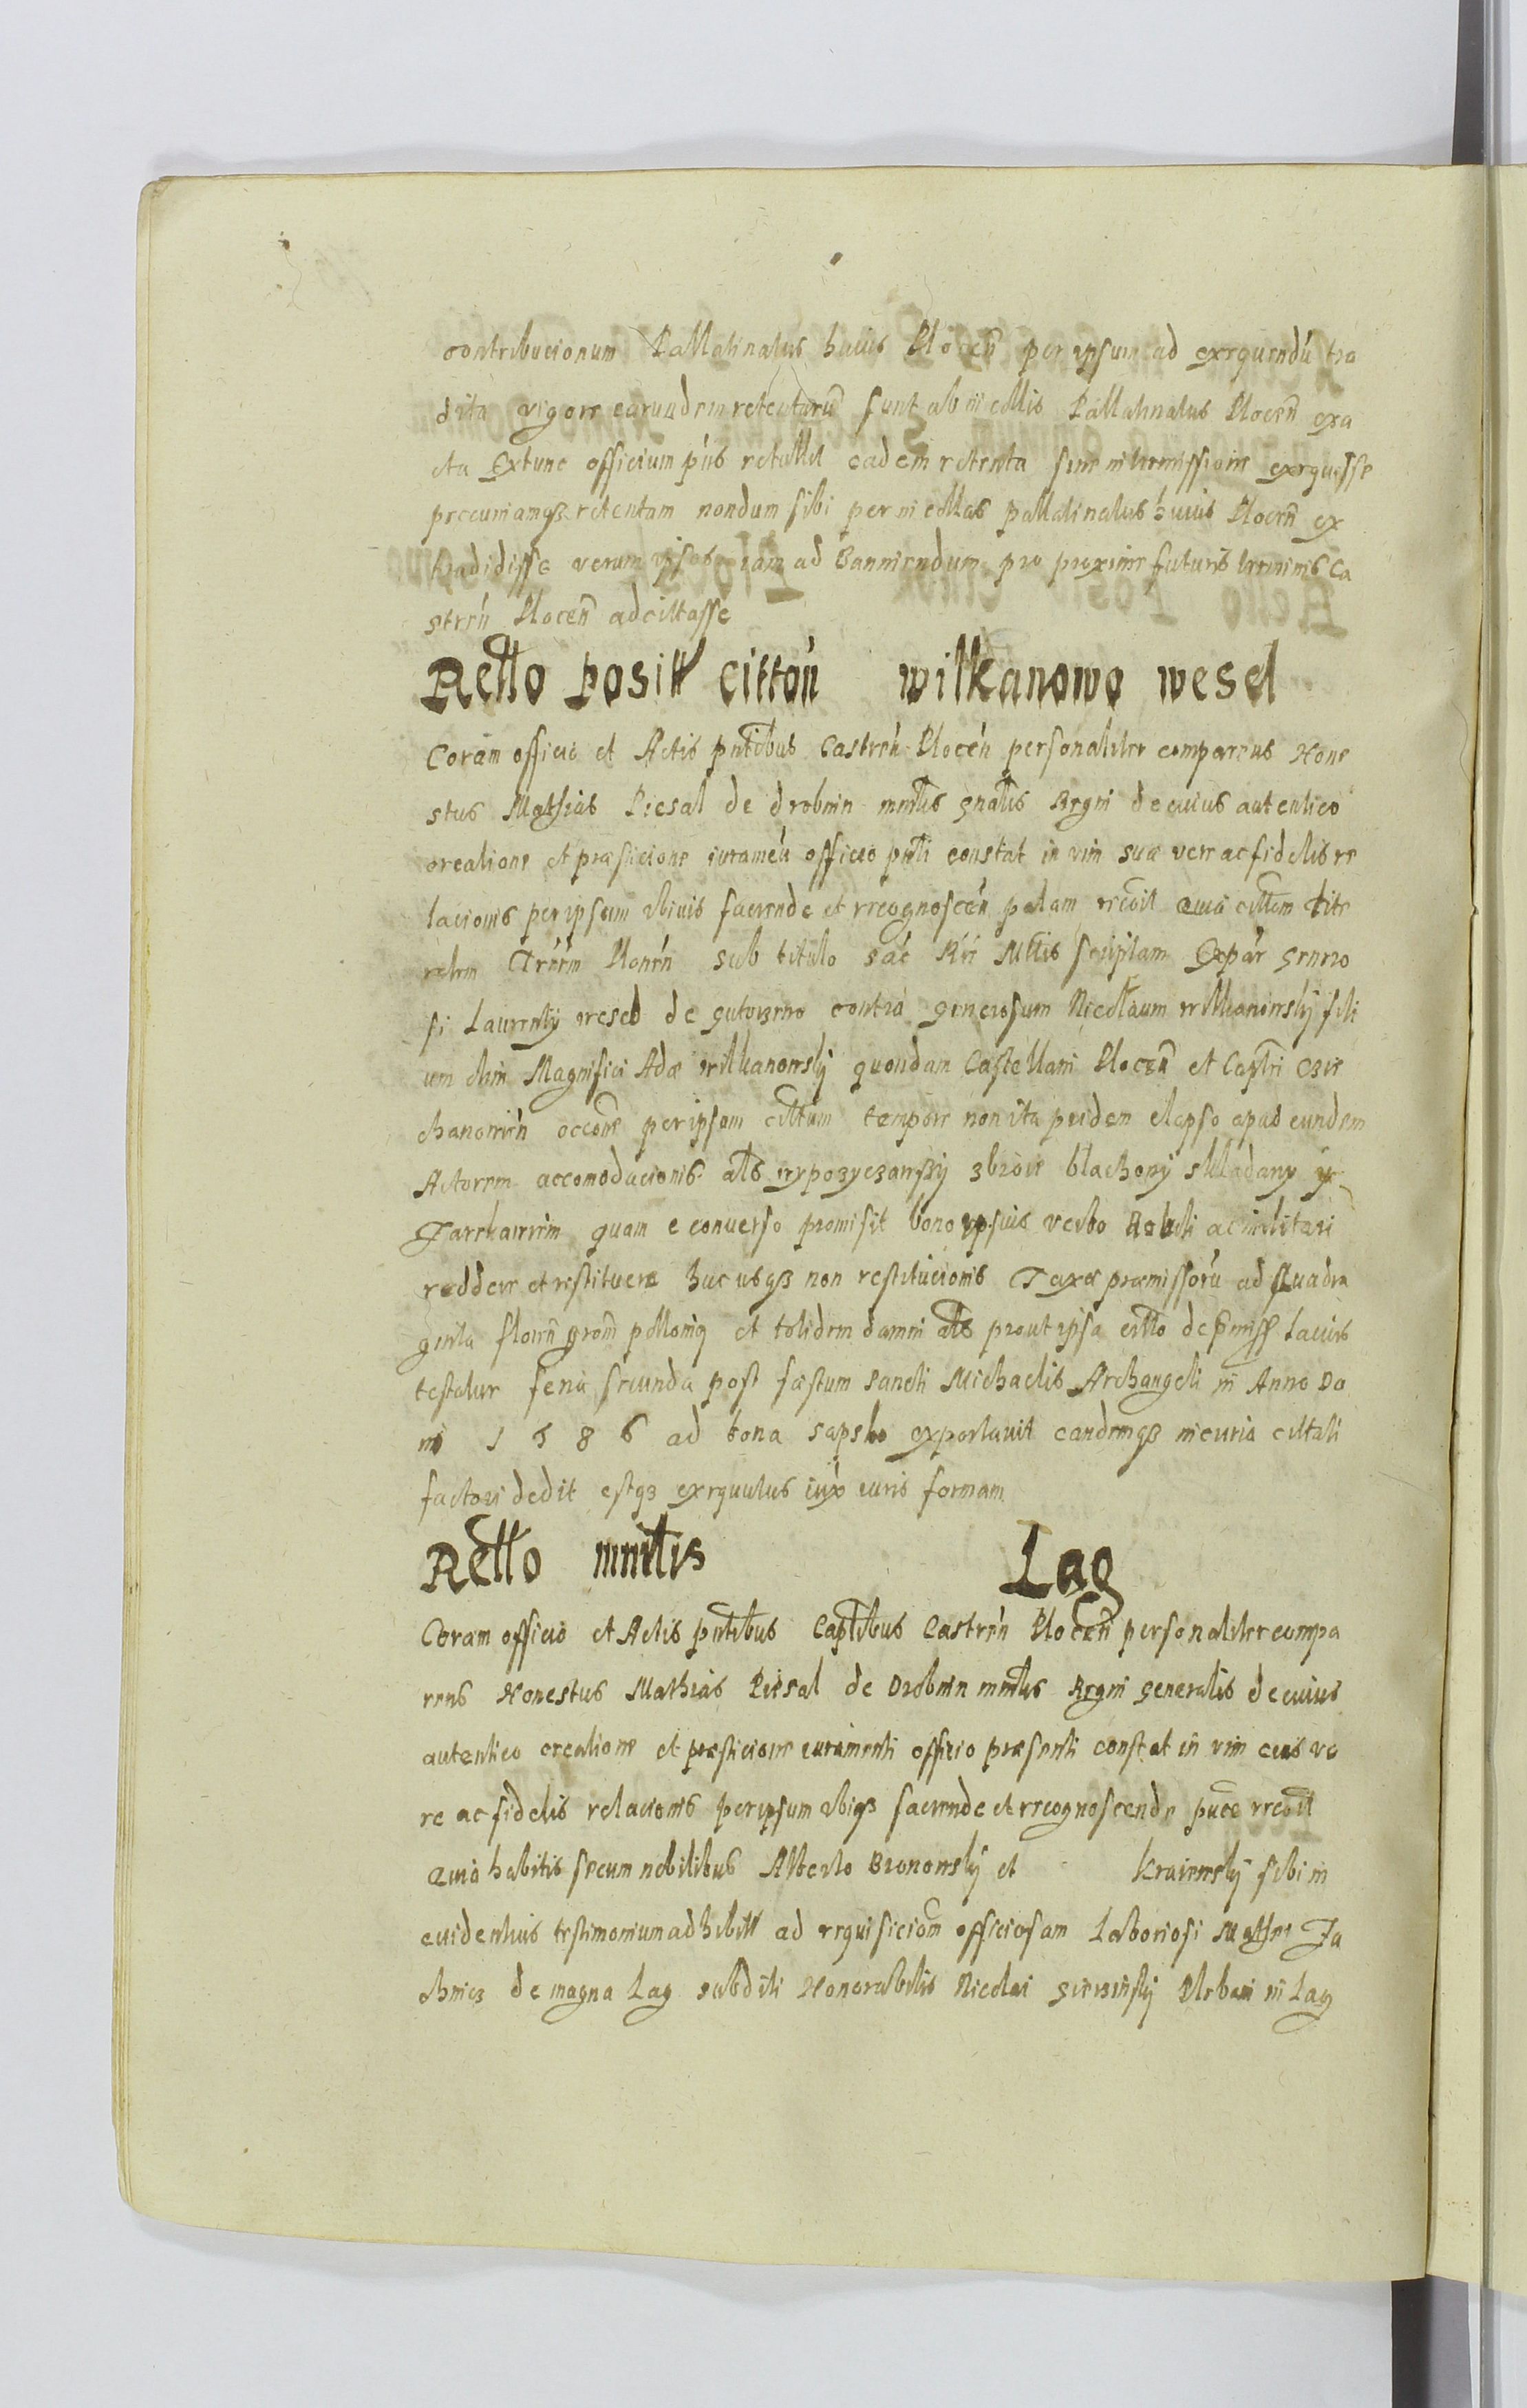 contribucionum Pallatinatus huius Plocen̄ per ipsum ad exequendú tra
dita vigore earundem retentarū sunt ab incollis Pallatinatus Plocen̄ exa
cta Extunc officium pńs retullit eadem retenta sine intermissione exequisse
pecuniamqȝ retentam nondum sibi per incollas pallatinatus huius Plocen̄ ex
tradidisse verum ipsos iam ad Banniendum pro proxime futuris terminis Ca
streń Plocen̄ adcittasse
Rello Positt cittoń wilkanowo wesel
Coram officio et Actis pntibus Castreń Ploceń personaliter comparens Hone
stus Mathias Piesal de drobnin mnrlis gnalis Regni de cuius autentico
creatione et præsticione iurameń officio pnti constat in vim suæ veræ ac fidelis re
lacionis per ipsum ubiuis faciende et recognosceń palam recoit Quia cittem lite
ralem Trrem Ploneń sub titulo Sac Rie Mttis scriptam Ex par Genero
si Laurenty wesel de gutowno contra generosum Nicolaum wilkanowsky fili
um olim Magnifici Adæ wilkanowsky quondam Castellani Plocen̄ et Captri Cie
chanowień occone per ipsam cittum tempore non ita pridem elapso apud eundem
Actorem accomodacionis als wypozyczanssy zbroie blachowy skladany y
Tarchawim quam e converso promisit bono ipsius verbo Nobili ac militari
reddere et restituere huc usqȝ non restitucionis Taxæ præmissorú ad Quadra
ginta floren̄ grom polloniq et totidem damni als prout ipsa citto de p̄miss lacius
testatur feria secunda post festum Sancti Michaelis Archangeli in Anno Do
ni 1586 ad bona sapsko exportavit eandemqȝ in curia cittati
factori dedit estqȝ exequutus iuxo iuris formam
Rello mnrlis Lag
Coram officio et Actis pntibus Captibus Castreń Plocen̄ personaliter compa
rens Honestus Mathias Piesal de Drobnin mnrlis Regni Generalis de cuius
autentico creatione et præsticione iuramenti officio præsenti constat in vim eius ve
re ac fidelis relacionis per ipsum ubiqȝ faciende et recognoscende puce recoit
Quia habitis secum nobilibus Alberto Bronowsky et Kraiewsky sibi in
euidentius testimonium adhibitt ad requisiciom officiosam Laboriosi Mathei Ja
chnicz de magna Lag subditi Honorabilis Nicolai Plebani in Lag